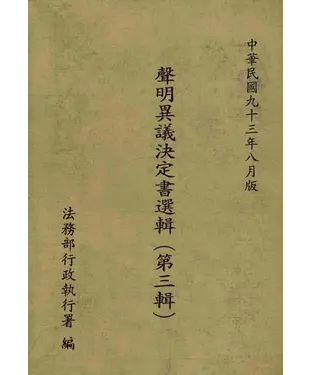 中華民國九十三年八月版
聲明異議決定書選輯（第三輯）
法務部行政執行署 編